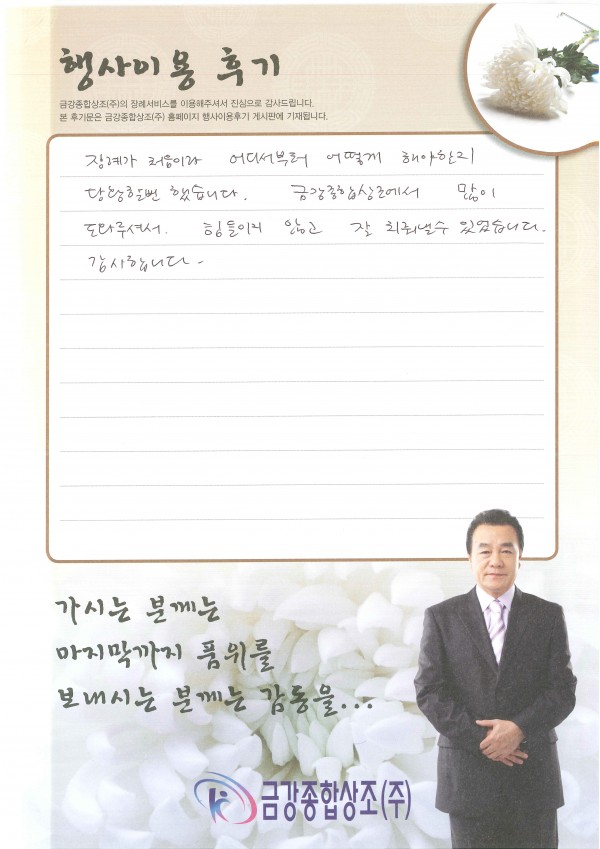 행사이용 후기
금강종합상조(주)의 장례서비스를 이용해주셔서 진심으로 감사드립니다.
본 후기문은 금강종합상조(주) 홈페이지 행사이용후기 게시판에 기재됩니다.
장례가 처음이라 어디서부터 어떻게 해야한지
당황할뻔 했습니다. 금강종합상조에서 많이
도와주셔서. 힘들이지 않고 잘 치뤄낼수 있었습니다.
감사합니다-
가시는 분께는
마지막까지 품위를
보내시는 분께는 감동을...
금강종합상조(주)